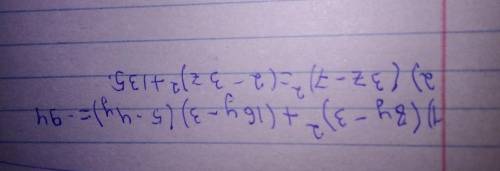 1) (8y - 3)² + (16y - 3) (5 - 4y) = -94
2) (3z - 7)² = (2 - 3z)² + 135.